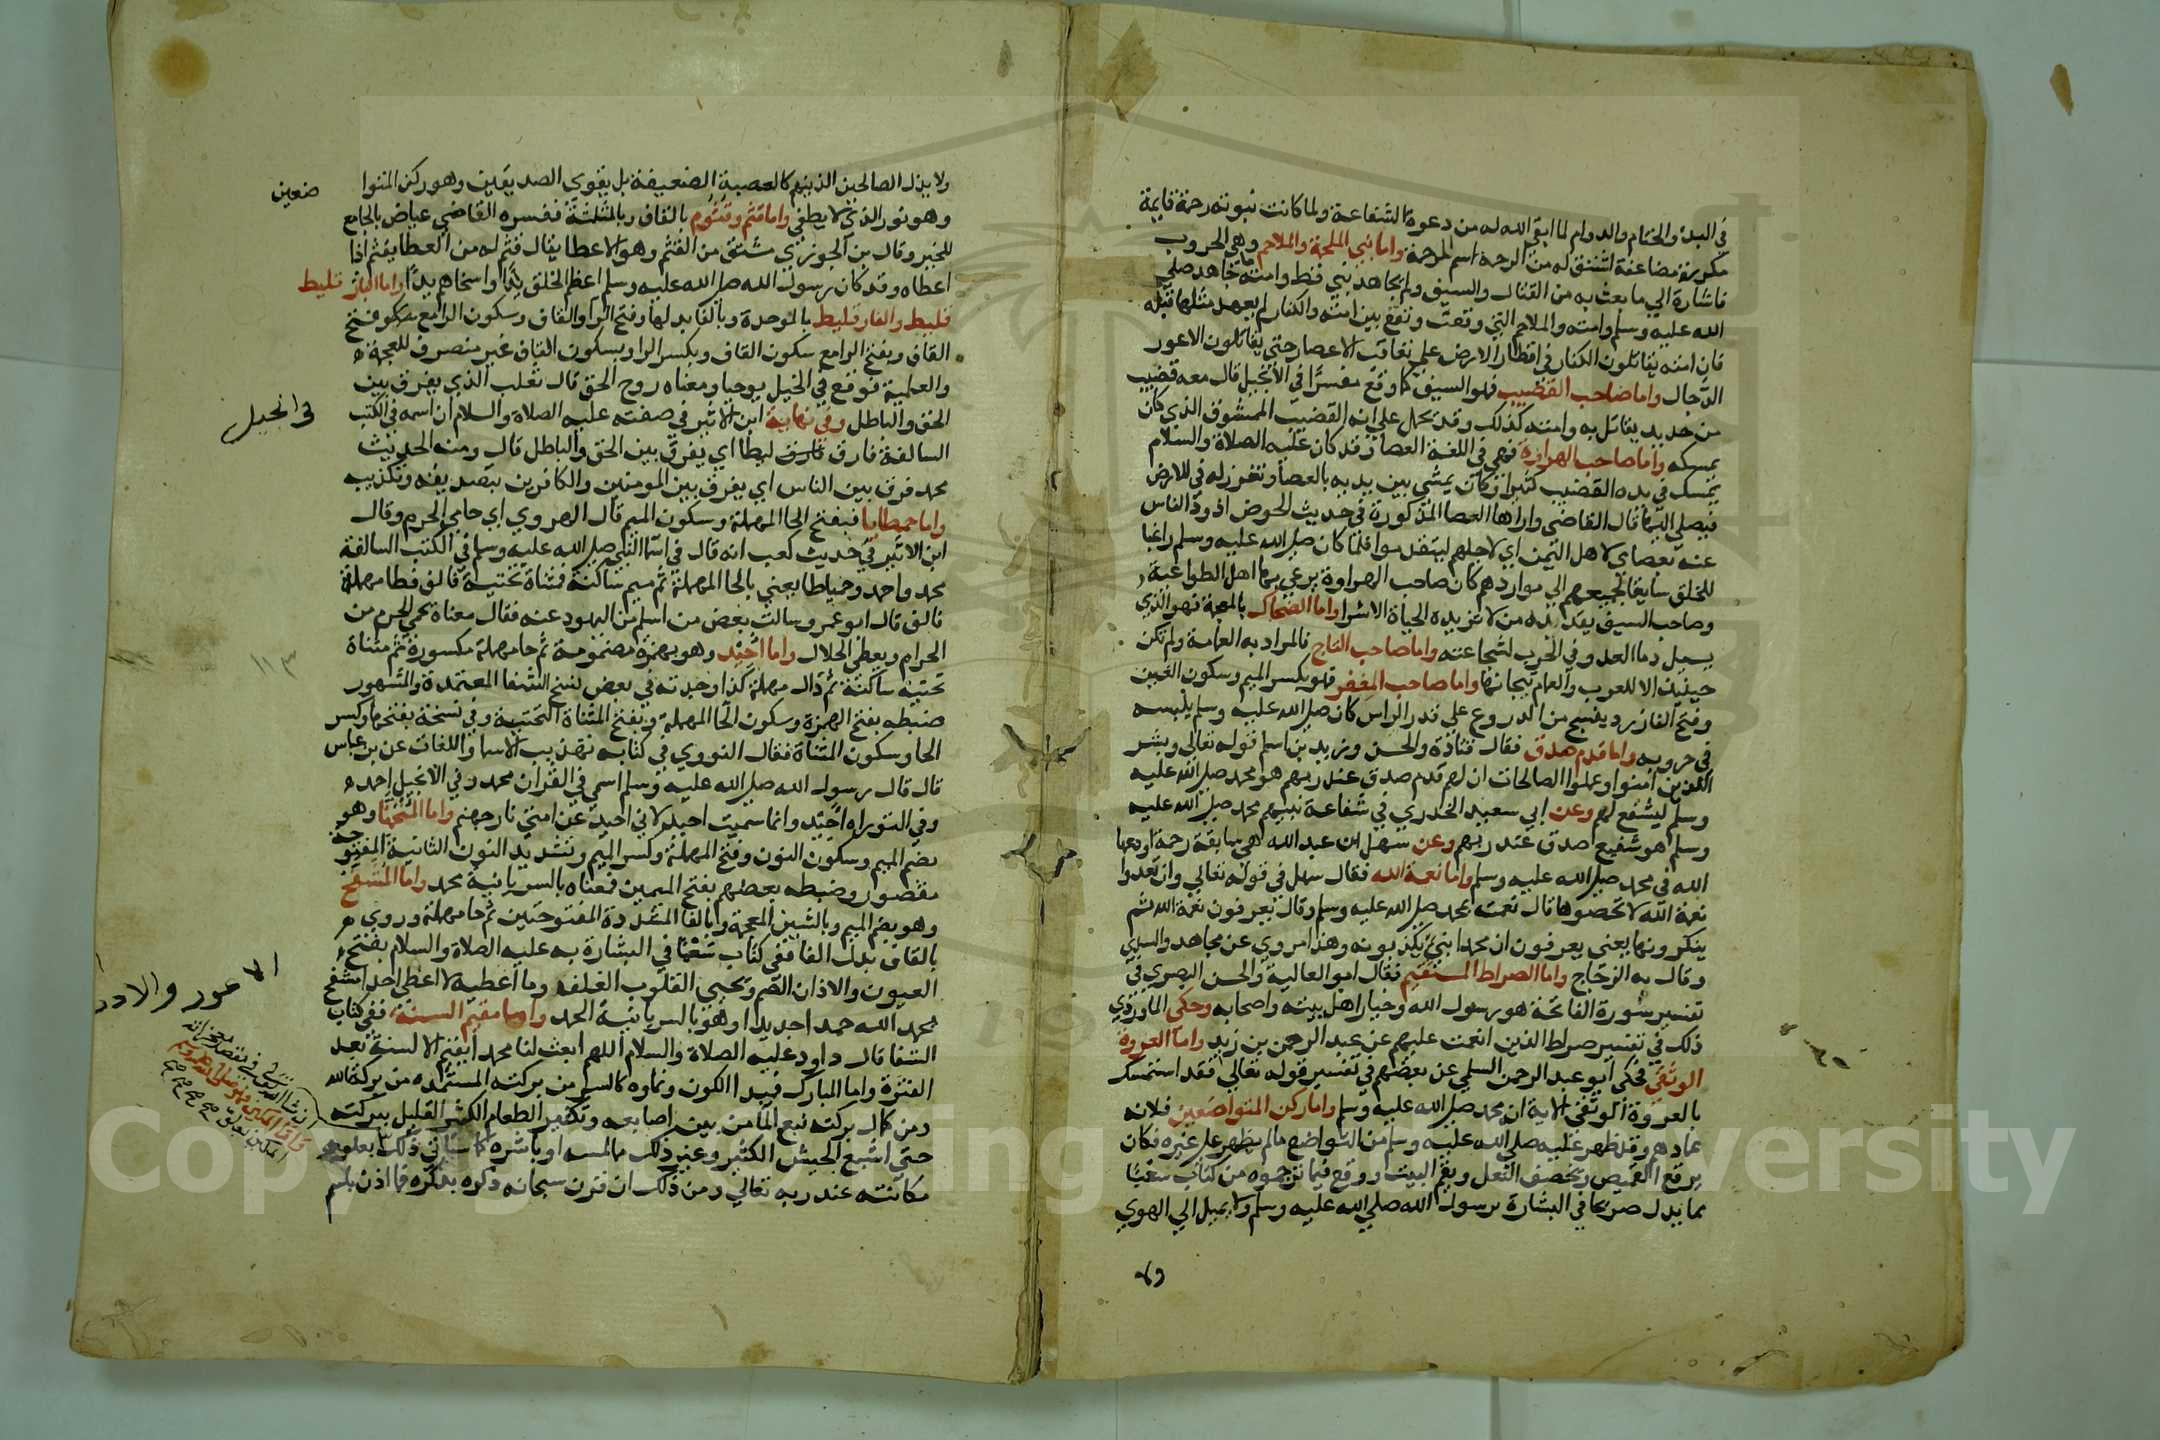 في البدء والختام والدوام لما ابقي الله له من دعوة الشفاعة ولما كانت نبوته رحمة قايمة
مكررة مضاعفة اشتق له من الرحمة اسم المرحمة واما نبي الملحمة والملاحم وهي الحروب
فاشارة الي ما بعث به من القتال والسيف ولم يجاهد نبي قط وامته ما جاهد صلي
الله عليه وسلم وامته والملاحم التي وقعت وتقع بين امته والكفار لم يعهد مثلها قبله
فان امته يقاتلون الكفار في اقطار الارض علي تعاقب الاعصار حتي يقاتلون الاعور
الدجال واما صاحب القضيب فهو السيف كما وقع مفسرا في الانجيل قال معه قضيب
من حديد يقاتل به وامته كذلك وقد يحمل علي انه القضيب الممشوق الذي كان
يمسكه واما صاحب الهراوة فهي في اللغة العصا وقد كان عليه الصلاة والسلام
يمسك في يده القضيب كثيرا وكان يمشي بين يديه بالعصا وتغرز له في الارض
فيصلي اليها قال القاضي واراها العصا المذكورة في حديث الحوض اذود الناس
عنه بعصاي لاهل اليمن اي لاجلهم ليتقدموا فلما كان صلي الله عليه وسلم راغبا
للخلق سايقا لجميعهم الي مواردهم كان صاحب الهراوة يرعي بها اهل الطواعية
وصاحب السيف يقد به من لا تزيده الحياة الا شرا واما الضحاك بالمعجمة فهو الذي
يسيل دما العدو في الحرب لشجاعته واما صاحب التاج فالمراد به العمامة ولم تكن
حينيذ الا للعرب والعمايم تيجانها واما صاحب المغفر فهو بكسر الميم وسكون الغين
وفتح الفا زرد ينسج من الدروع علي قدر الراس كان صلي الله عليه وسلم يلبسه
في حروبه واما قدم صدق فقال قتادة والحسن وزيد بن اسلم قوله تعالي وبشر
الذين امنوا وعملوا الصالحات ان لهم قدم صدق عند ربهم هو محمد صلي الله عليه
وسلم يشفع لهم وعن ابي سعيد الخدري في شفاعة نبيهم محمد صلي الله عليه
وسلم هو شفيع صدق عند ربهم وعن سهل ابن عبد الله هي سابقة رحمة اودعها
الله في محمد صلي الله عليه وسلم واما نعمة الله فقال سهل في قوله تعالي وان تعدوا
نعمة الله لا تحصوها قال نعمته بمحمد صلي الله عليه وسلم وقال يعرفون نعمة الله ثم
ينكرونها يعني يعرفون ان محمدا نبي ثم يكذبونه وهذا مروي عن مجاهد والسدي
وقال به الزجاج واما الصراط المستقيم فقال ابو العالية والحسن البصري في
تفسير سورة الفاتحة هو رسول الله وخيار اهل بيته واصحابه وحكي الماوردي
ذلك في تفسير صراط الذين انعمت عليهم عن عبد الرحمن بن زيد واما العروة
الوثقي فحكي ابو عبد الرحمن السلمي عن بعضهم في تفسير قوله تعالي فقد استمسك
بالعروة الوثقي الاية ان محمد صلي الله عليه وسلم واما ركن المتواضعين فلانه
عمادهم وقد ظهر عليه صلي الله عليه وسلم من التواضع ما لم يظهر علي غيره فكان
يرقع القميص ويخصف النعل ويقم البيت ووقع فيما ترجموه من كتاب شعيا
مما يدل صريحا في البشارة برسول الله صلي الله عليه وسلم ولا يميل الي الهوي
ولا
ولا يذل الصالحين الذين هم كالعصبة الضعيفة بل يقوي الصديقين وهو ركن المتوا
ضعين
وهو نور الذي لا يطفي واما قثم وقثوم بالقاف وبالمثلثة ففسره القاضي عياض بالجامع
للخير وقال بن الجوزي مشتق من القثم وهو الاعطا يقال قثم له من العطا يقثم اذا
اعطاه وقد كان رسول الله صلي الله عليه وسلم اعظم الخلق ندا واسخاهم يدا واما البار قليط
قليط والفارقليط بالموحدة وبالفا بدلها وفتح الرا والقاف وسكون الرا مع فتح
القاف وبفتح الرا مع سكون القاف وبكسر الرا وبسكون القاف غير منصرف للعجمة
والعلمية فوقع في انجيل يوحنا ومعناه روح الحق قال ثعلب الذي يفرق بين
في انجيل
الحق والباطل وفي نهاية ابن الاثير في صفته عليه الصلاة والسلام ان اسمه في الكتب
السالفة فارق ليطا اي يفرق بين الحق والباطل قال ومنه الحديث
محمد فرق بين الناس اي يفرق بين المومنين والكافرين بتصديقه وتكذيبه
واما حمطايا فبفتح الحا المهملة وسكون الميم قال الهروي اي حامي الحرم وقال
ابن الاثير في حديث كعب انه قال في اسما النبي صلي الله عليه وسلم في الكتب السالفة
محمد واحمد وحمياطا يعني بالحا المهملة ثم ميم ساكنة فمثناة تحتية فالف فطا مهملة
فالف قال ابو عمر وسالت بعض من اسلم من اليهود عنه فقال معناه يحمي الحرم من
الحرام ويعطي الحلال واما احيد وهو بهمزة مضمومة ثم حا مهملة مكسورة ثم مثناة
تحتية ساكنة ثم دال مهملة كذا وجدته في بعض نسخ الشفا المعتمدة والمشهور
ضبطه بفتح الهمزة وسكون الحا المهملة وبفتح المثناة التحتية وفي نسخة بفتحها وكسر
الحا وسكون المثناة فقال النووي في كتابه تهذيب الاسما واللغات عن بن عباس
قال قال رسول الله صلي الله عليه وسلم اسمي في القران محمد وفي الانجيل احمد
وفي التوراه احيد وانما سميت احيد لاني احيد عن امتي نار جهنم واما المنحمنا وهو
بضم الميم وسكون النون وفتح المهملة وكسر الميم وتشديد النون الثانية المفتوحة
مقصور وضبطه بعضهم بفتح الميمين فمعناه بالسريانية محمد واما المشفح
وهو بضم الميم وبالشين المعجمة وبالفا المشددة المفتوحتين ثم حا مهملة وروي
بالقاف بدل الفا ففي كتاب شعيا في البشارة به عليه الصلاة والسلام بفتح
العيون والاذان الصم ويحيي القلوب الغلف وما اعطيه لا اعطي احدا مشفح
الاعور
يحمد الله حمدا جديدا وهو بالسريانية الحمد واما مقيم السنة ففي كتاب
الشفا قال داود عليه الصلاة والسلام اللهم ابعث لنا محمدا يقيم الا لسنة بعد
الفترة واما المبارك فمبدا الكون ونماوه كالسي من بركته المستمده من بركة الله
ومن كمال بركته نبع الما من بين اصابعه وتكثير الطعام الكثير القليل ببركته
حتي اشبع الجيش الكثير وغير ذلك مما لمسه او باشره
واما المكين فهو صلي الله عليه وسلم
المكين بعلو
مكانته عند ربه تعالي ومن ذلك ان قرن سبحانه ذكره بذكره فما اذن باسم